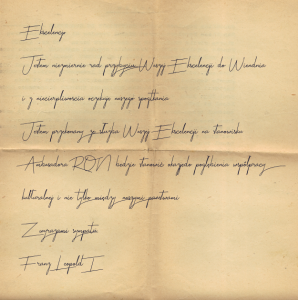 Ekscelencjo
Jestem niezmiernie rad przybyciu Waszej Ekscelencji do Wiednia
i z niecierpliwością oczekuję naszego spotkania.
Jestem przekonany, że służba Waszej Ekscelencji na stanowisku
Ambasadora RON będzie stanowić okazję do pogłębienia współpracy
kulturalnej i nie tylko między naszymi państwami
Z wyrazami sympatii
Franz Leopold I